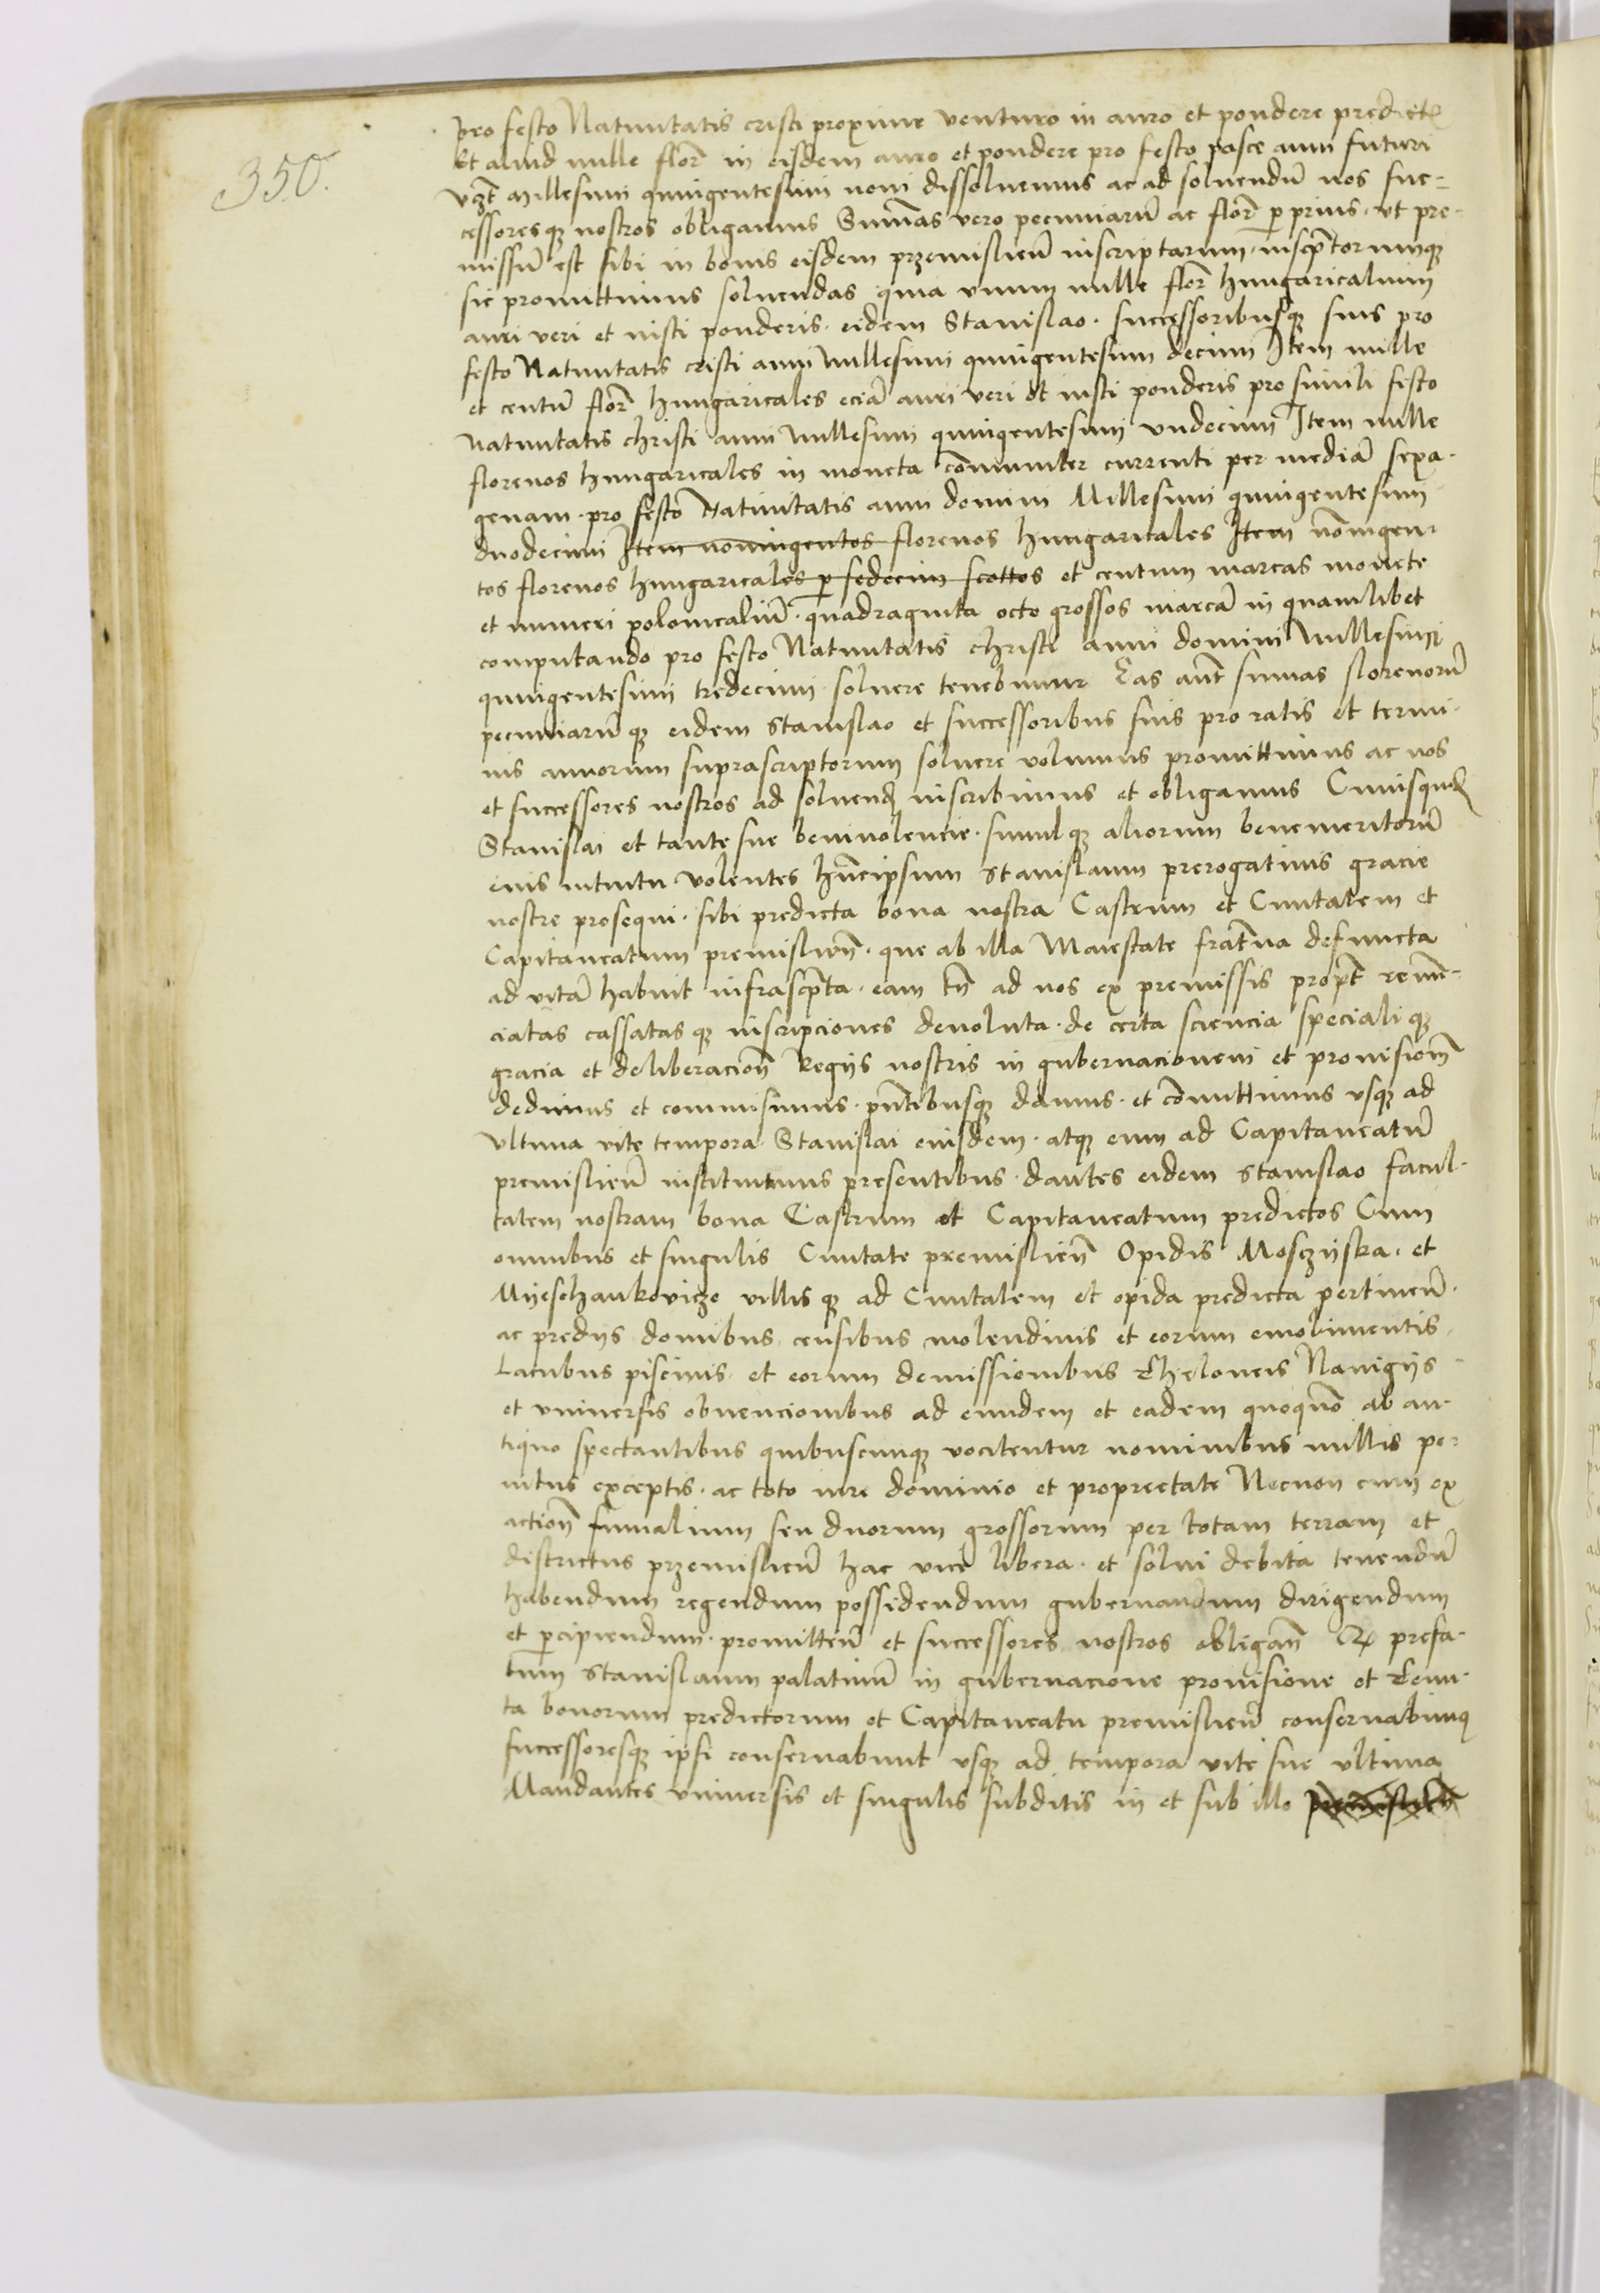 350.
pro festo Natiuitatis cristi proxime venturo in auro et pondere predictis
Et aliud mille flor̄ in eisdem auro et pondere pro festo pasce anni futuri
vȝt Millesimi quingentesimi noni dissoluemus ac ad soluendū nos suc-
cessoresqꝫ nostros obligamus Sum̄as vero pecuniarū ac flor̄ ꝑ prius · vt pre-
missū est sibi in bonis eisdem przemislien̄ inscriptarum · inscp̄torumqꝫ
sic promittimus soluendas quia vnum mille flor̄ hungaricalium
auri veri et iusti ponderis · eidem Stanislao · successoribusqꝫ suis pro
festo Natiuitatis cristi anni Millesimi quingentesimi decimi Item mille
et centū flor̄ hungaricales eciā auri veri et iusti ponderis pro simili festo
Natiuitatis christi anni Millesimi quingentesimi vndecimi Item mille
florenos hungaricales in moneta cōmuniter currenti per mediā sexa-
genam · pro festo Natiuitatis anni domini Millesimi quingentesimi
duodecimi Item noningentos florenos hungaricales Item nōingen-
tos florenos hungaricales ꝑ sedecim scottos et centum marcas monete
et numeri polonicaliū · quadraginta octo grossos marcā in quamlibet
computando pro festo Natiuitatis christi anni domini Millesimi
quingentesimi tredecimi soluere tenebimur Eas aūt sumas florenorū
pecuniarūqꝫ eidem Stanislao et successoribus suis pro ratis et termi-
nis annorum suprascriptorum soluere volumus promittimus ac nos
et successores nostros ad soluend inscribimus et obligamus Cuiusquid
Stanislai et tante sue beniuolencie · simulqꝫ aliorum benemeritorū
eius intuitu volentes hūcipsum Stanislaum prerogatiuis gracie
nostre prosequi · sibi predicta bona nostra Castrum et Ciuitatem et
Capitaneatum premislien̄ · que ab illa Maiestate fratīna defuncta
ad vitā habuit infrascp̄ta · eam tn̄ ad nos ex premissis propt̄ renūn-
ciatas cassatasqꝫ inscripciones deuoluta · de certa sciencia specialiqꝫ
gracia et deliberacion̄ Regijs nostris in gubernacionem et prouision̄
dedimus et commisimus · pn̄tibusqꝫ damus · et cōmittimus vsqꝫ ad
vltima vite tempora Stanislai eiusdem · atqꝫ eum ad Capitaneatū
premislien̄ instituimus presentibus · dantes eidem Stanislao facul-
tatem nostram bona Castrum et Capitaneatum predictos Cum
omnibus et singulis Ciuitate premislien̄ Opidis Mosczijska · et
Nijeschankovicze villisqꝫ ad Ciuitatem et opida predicta pertinen̄ ·
ac predijs domibus censibus molendinis et eorum emolimentis
Lacubus piscinis · et eorum demissionibus Theloneis Nauigijs
et vniuersis obuencionibus ad eundem et eadem quoquō ab an-
tiquo spectantibus quibuscumqꝫ vocitentur nominibus nullis pe-
nitus exceptis · ac toto iure dominio et proprietate Necnon cum ex
action̄ fumalium seu duorum grossorum per totam terram et
districtus przemislien̄ hac vice libera · et solui debita tenendū
habendum regendum possidendum gubernandum dirigendum
et ꝑcipiendum · promitten̄ et successores nostros obligan̄ Qꝫ prefa-
tum Stanislaum palatinū in gubernacione prouisione et tenu-
ta bonorum predictorum et Capitaneatu premislien̄ conseruabimꝰ
successoresqꝫ ipsi conseruabunt vsqꝫ ad tempora vite sue vltima
Mandantes vniuersis et singulis subditis in et sub illo